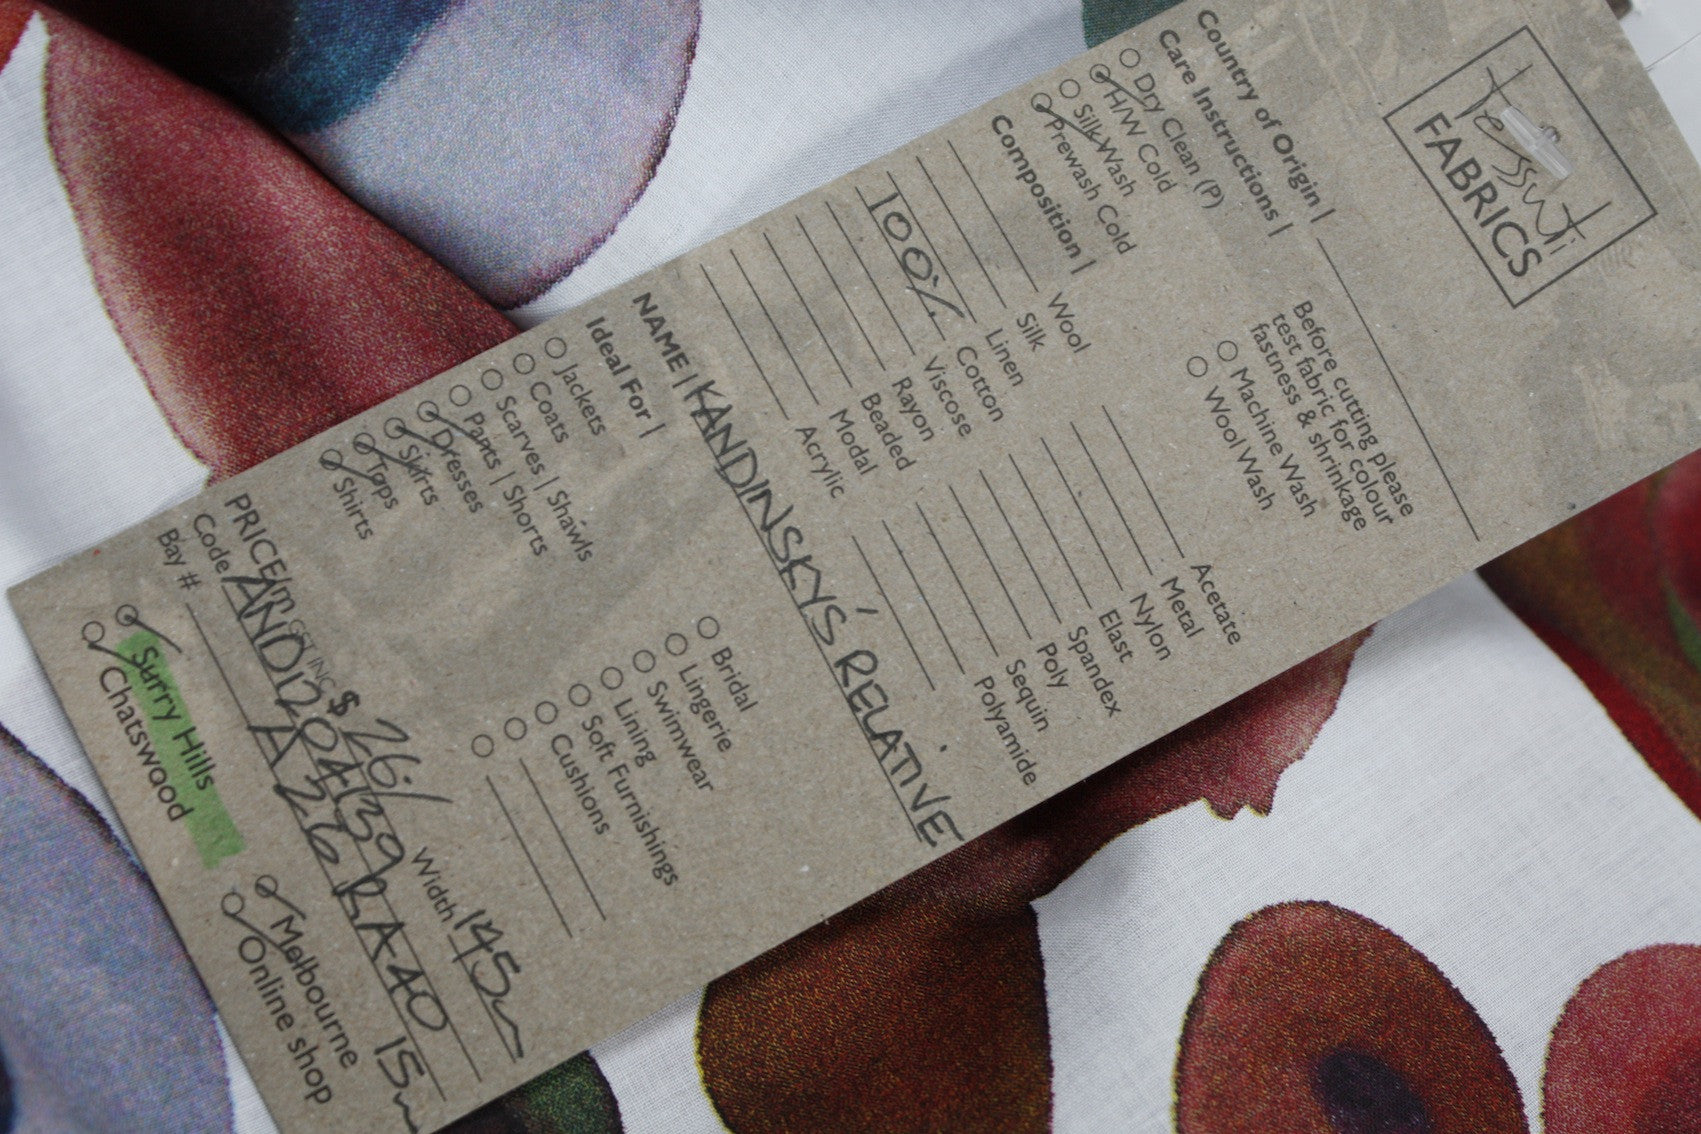 Tessuti
FABRICS
Country of Origin |
Care Instructions |
Dry Clean (P)
H/W Cold
Silk Wash
Prewash Cold
Before cutting please
test fabric for colour
fastness & shrinkage
Machine Wash
Wool Wash
Composition |
Wool
Silk
Linen
100% Cotton
Viscose
Rayon
Beaded
Modal
Acrylic
Acetate
Metal
Nylon
Elast
Spandex
Poly
Sequin
Polyamide
NAME | KANDINSKYS' RELATIVE
Ideal For |
Jackets
Coats
Scarves | Shawls
Pants | Shorts
Dresses
Skirts
Tops
Shirts
Bridal
Lingerie
Swimwear
Lining
Soft Furnishings
Cushions
PRICE/m GST INC $ 26/ Width 145
Code
Bay # A26 15m
Surry Hills
Chatswood
Melbourne
Online shop